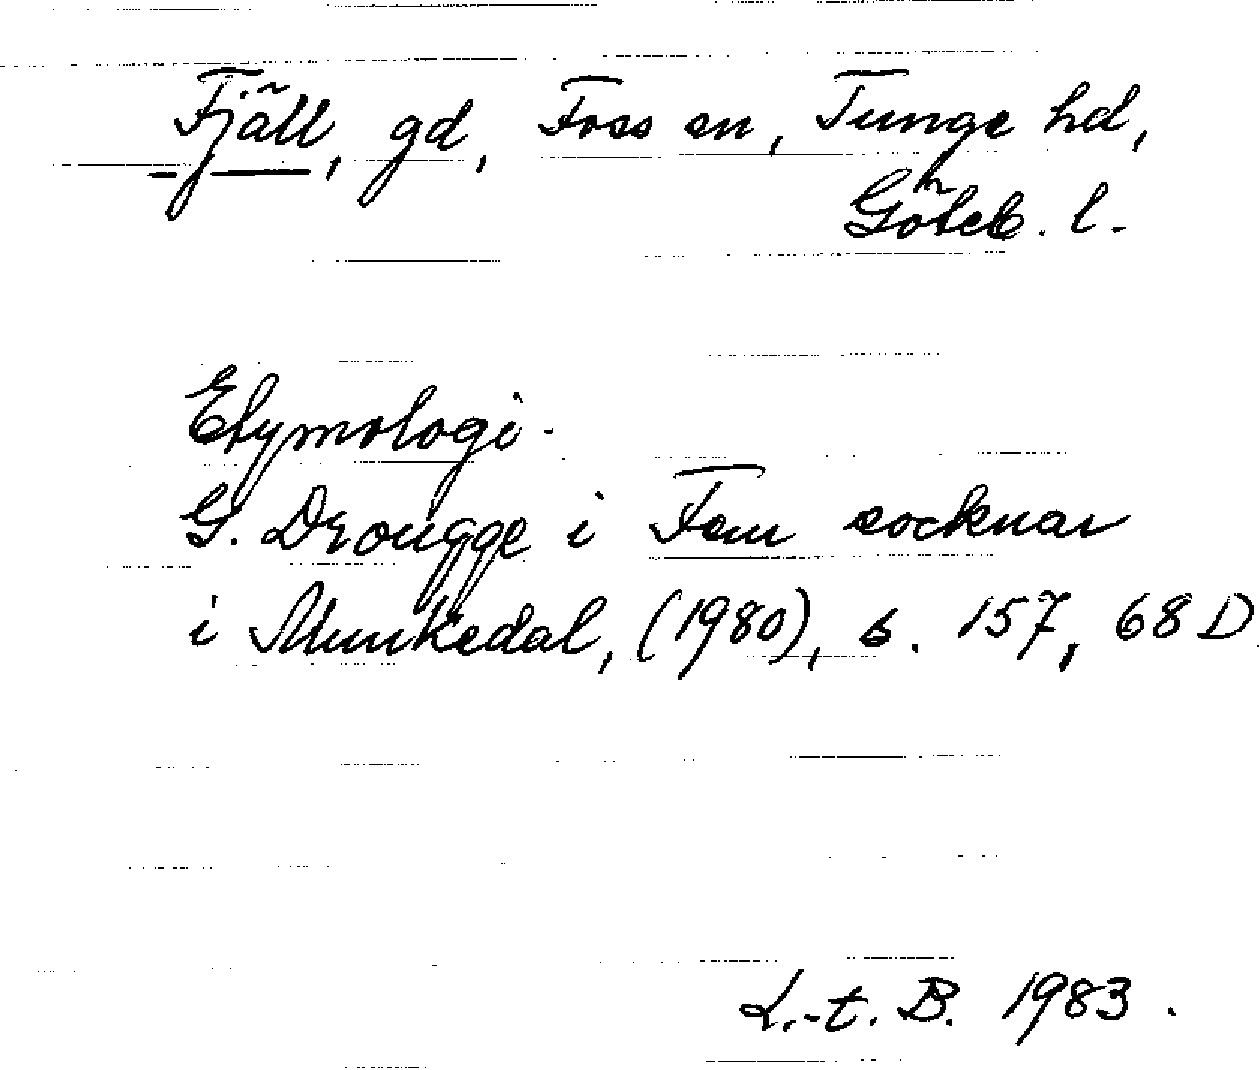 Fjäll, gd, Foss sn, Tunge hd,
Göteb. l.
Etymologi.
G. Drougge i Fem socknar
i Munkedal, (1980), s. 157, 68 D
L.-t. B. 1983.